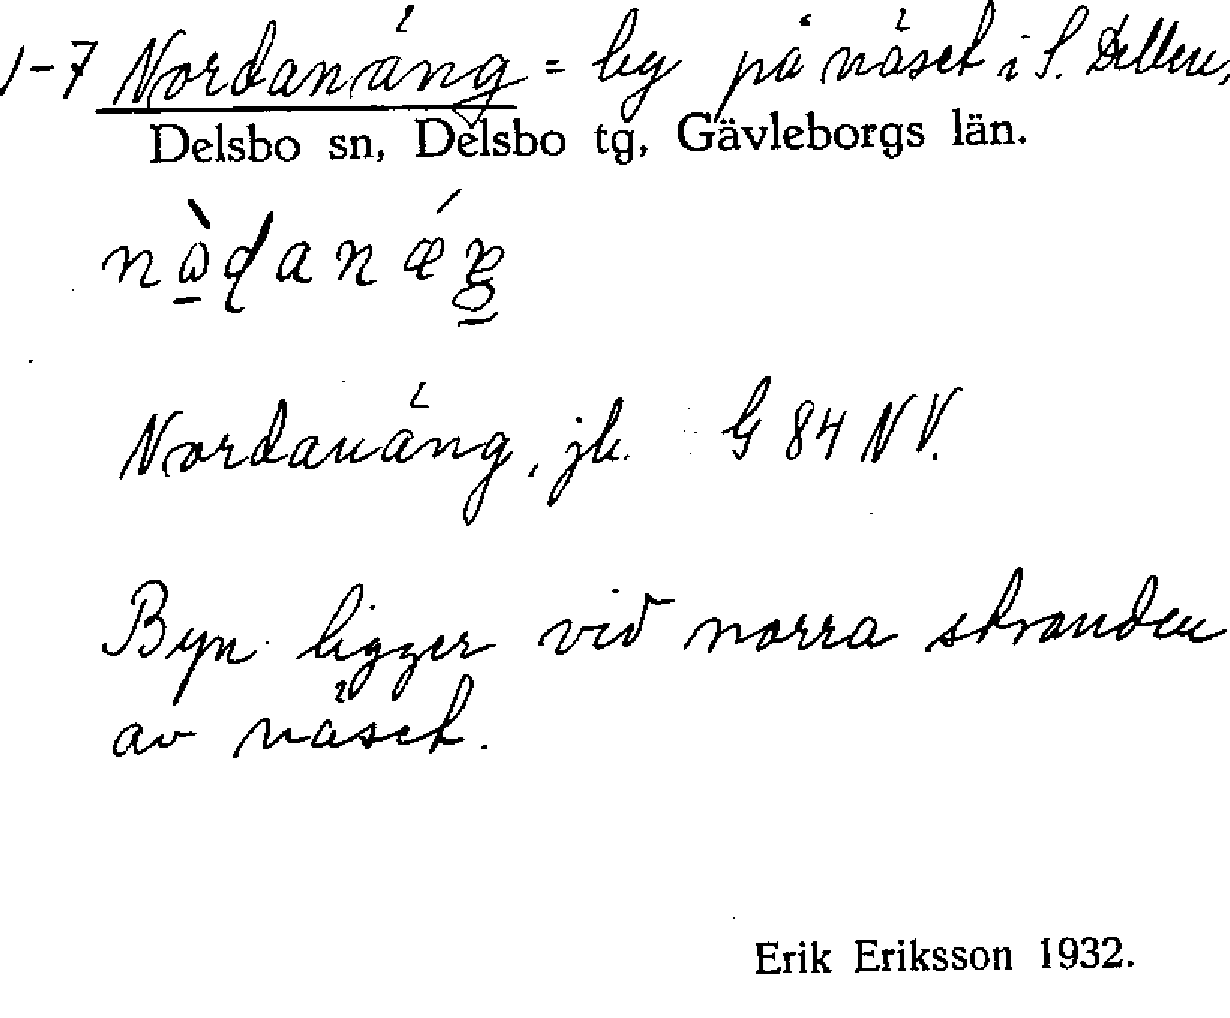 1-7 Nordanäng = by på näset i S. Dellen,
Delsbo sn, Delsbo tg, Gävleborgs län.
Nordanäng, jk. G 84 NV.
Byn ligger vid norra stranden
av näset.
Erik Eriksson 1932.